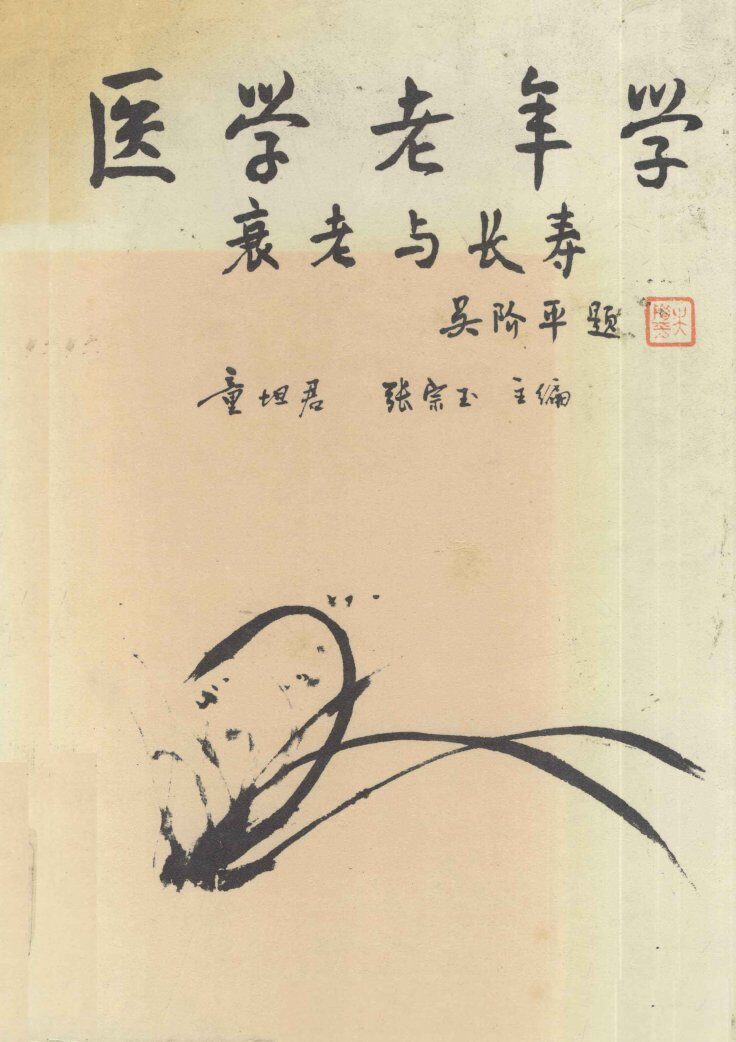 医学老年学
衰老与长寿
吴阶平题
童坦君 张宗玉 主编